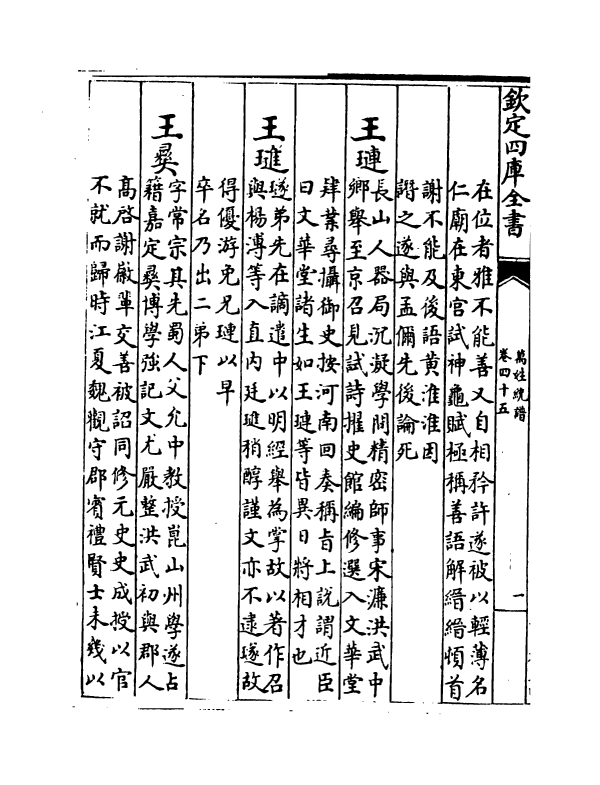 欽定四庫全書
萬姓統譜
卷四十五
一
在位者雅不能善又自相矜許遂被以輕薄名
仁廟在東宮試神龜賦極稱善語解縉縉頓首
謝不能及後語黄淮淮因
譖之遂與孟偁先後論死
王璉
長山人器局沉凝學問精密師事宋濂洪武中
鄉舉至京召見試詩擢史館編修選入文華堂
肄業尋攝御史按河南回奏稱旨上説謂近臣
曰文華堂諸生如王璉等皆異日將相才也
王璡
璲弟先在謫遣中以明經舉為掌故以著作召
與楊溥等入直内廷璡稍醇謹文亦不逮璲故
得優游免兄璉以早
卒名乃出二弟下
王彛
字常宗其先蜀人父允中教授崑山州學遂占
籍嘉定彛博學強記文尤嚴整洪武初與郡人
髙啓謝徽輩交善被詔同修元史史成授以官
不就而歸時江夏魏觀守郡賓禮賢士未幾以